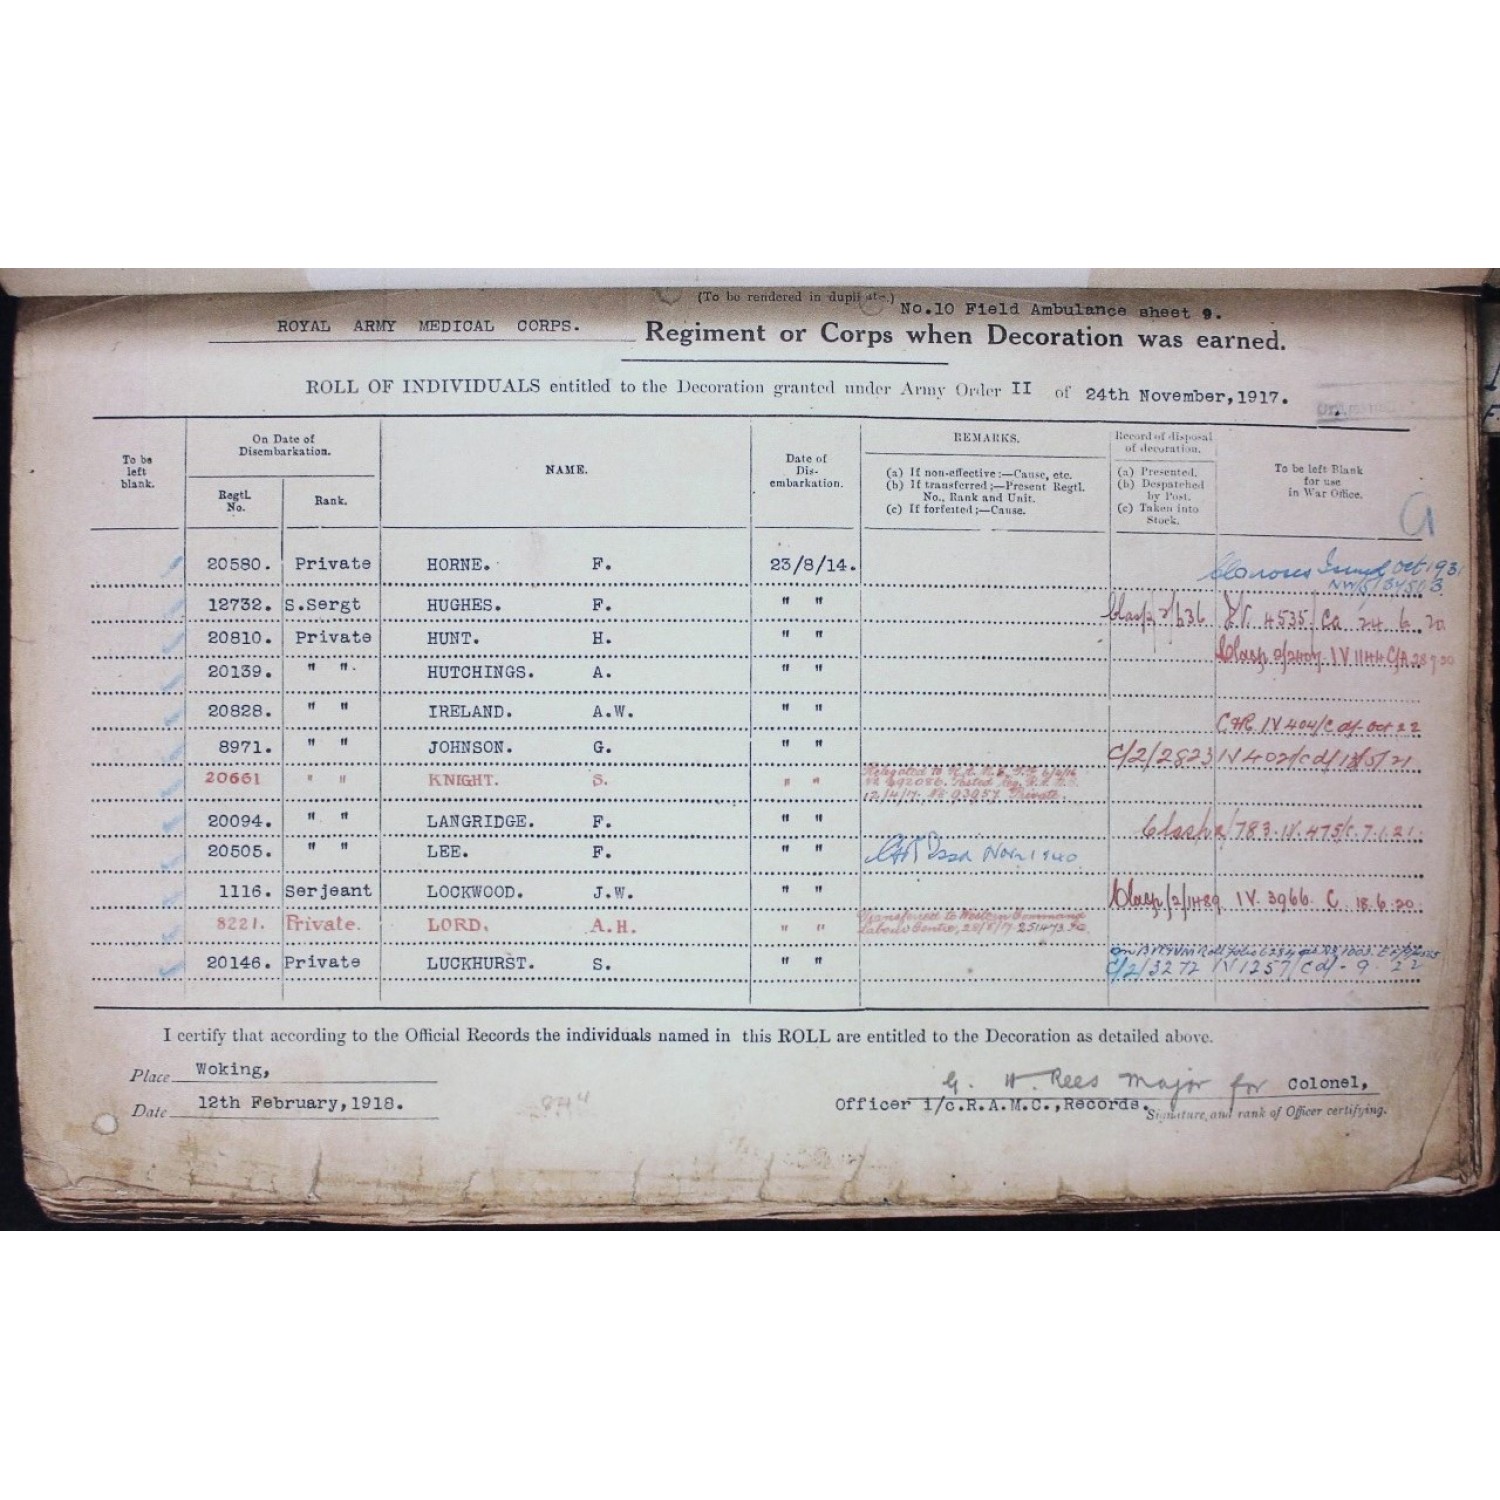 (To be rendered in duplicate.)
No.10 Field Ambulance sheet 9.
ROYAL ARMY MEDICAL CORPS. Regiment or Corps when Decoration was earned.
ROLL OF INDIVIDUALS entitled to the Decoration granted under Army Order II of 24th November,1917.
To be left blank. On Date of Disembarkation. Regtl. No. Rank. NAME. Date of Dis-embarkation. REMARKS. (a) If non-effective :—Cause, etc. (b) If transferred ;—Present Regtl. No., Rank and Unit. (c) If forfeited ;—Cause. Record of disposal of decoration. (a) Presented. (b) Despatched by Post. (c) Taken into Stock. To be left Blank for use in War Office.
20580. Private HORNE. F. 23/8/14. Issued Oct 1931
NW/5/34503
12732. S.Sergt HUGHES. F. " " Clasp 2/636 IV. 4535/Ca 24 6 20
20810. Private HUNT. H. " " Clasp IV 1144 C/A 28 7 20
20139. " " HUTCHINGS. A. " "
20828. " " IRELAND. A.W. " " IV 404/Cdf Oct 22
8971. " " JOHNSON. G. " " C/2/2823 IV 402/Cdf 18/5/21
20661 " " KNIGHT. S. " " Relegated to
Posted
12/4/17. No 93957 Private.
20094. " " LANGRIDGE. F. " " Clasp 2/783. IV. 475/c. 7.1.21.
20505. " " LEE. F. " " Nov 1940
1116. Serjeant LOCKWOOD. J.W. " " Clasp/2/1489 IV. 3966 C. 18.6.20.
8221. Private. LORD. A.H. " " Transferred to Western Command
Labour Centre, 28/8/17 251473
20146. Private LUCKHURST. S. " " C/2/3272 IV 1257/Cdf - 9 22
I certify that according to the Official Records the individuals named in this ROLL are entitled to the Decoration as detailed above.
Place Woking,
G. W. Rees Major for Colonel,
Date 12th February,1918.
Officer i/c.R.A.M.C.,Records.
Signature, and rank of Officer certifying.